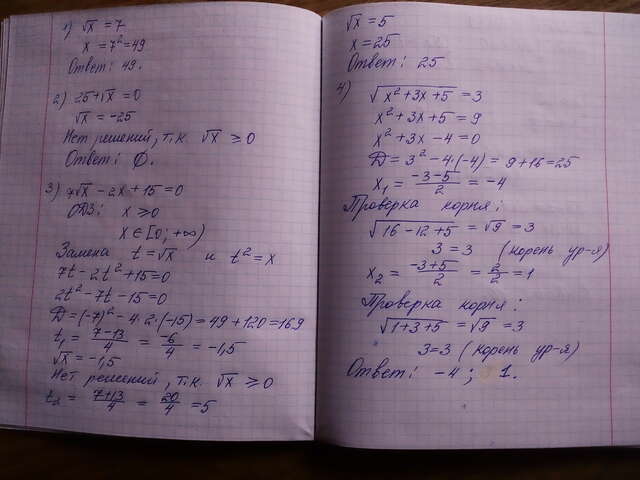 1) √x = 7
x = 7² = 49
Ответ: 49.
2) 25 + √x = 0
√x = -25
Нет решений, т.к. √x ≥ 0
Ответ: ∅.
3) 7√x - 2x + 15 = 0
ОДЗ: x ≥ 0
x ∈ [0; +∞)
Замена t = √x и t² = x
7t - 2t² + 15 = 0
2t² - 7t - 15 = 0
D = (-7)² - 4·2·(-15) = 49 + 120 = 169
t₁ = (7-13)/4 = -6/4 = -1,5
√x = -1,5
Нет решений, т.к. √x ≥ 0
t₂ = (7+13)/4 = 20/4 = 5
√x = 5
x = 25
Ответ: 25
4) √(x² + 3x + 5) = 3
x² + 3x + 5 = 9
x² + 3x - 4 = 0
D = 3² - 4·(-4) = 9 + 16 = 25
x₁ = (-3-5)/2 = -4
Проверка корня:
√(16 - 12 + 5) = √9 = 3
3 = 3 (корень ур-я)
x₂ = (-3+5)/2 = 2/2 = 1
Проверка корня:
√(1+3+5) = √9 = 3
3 = 3 (корень ур-я)
Ответ: -4; 1.